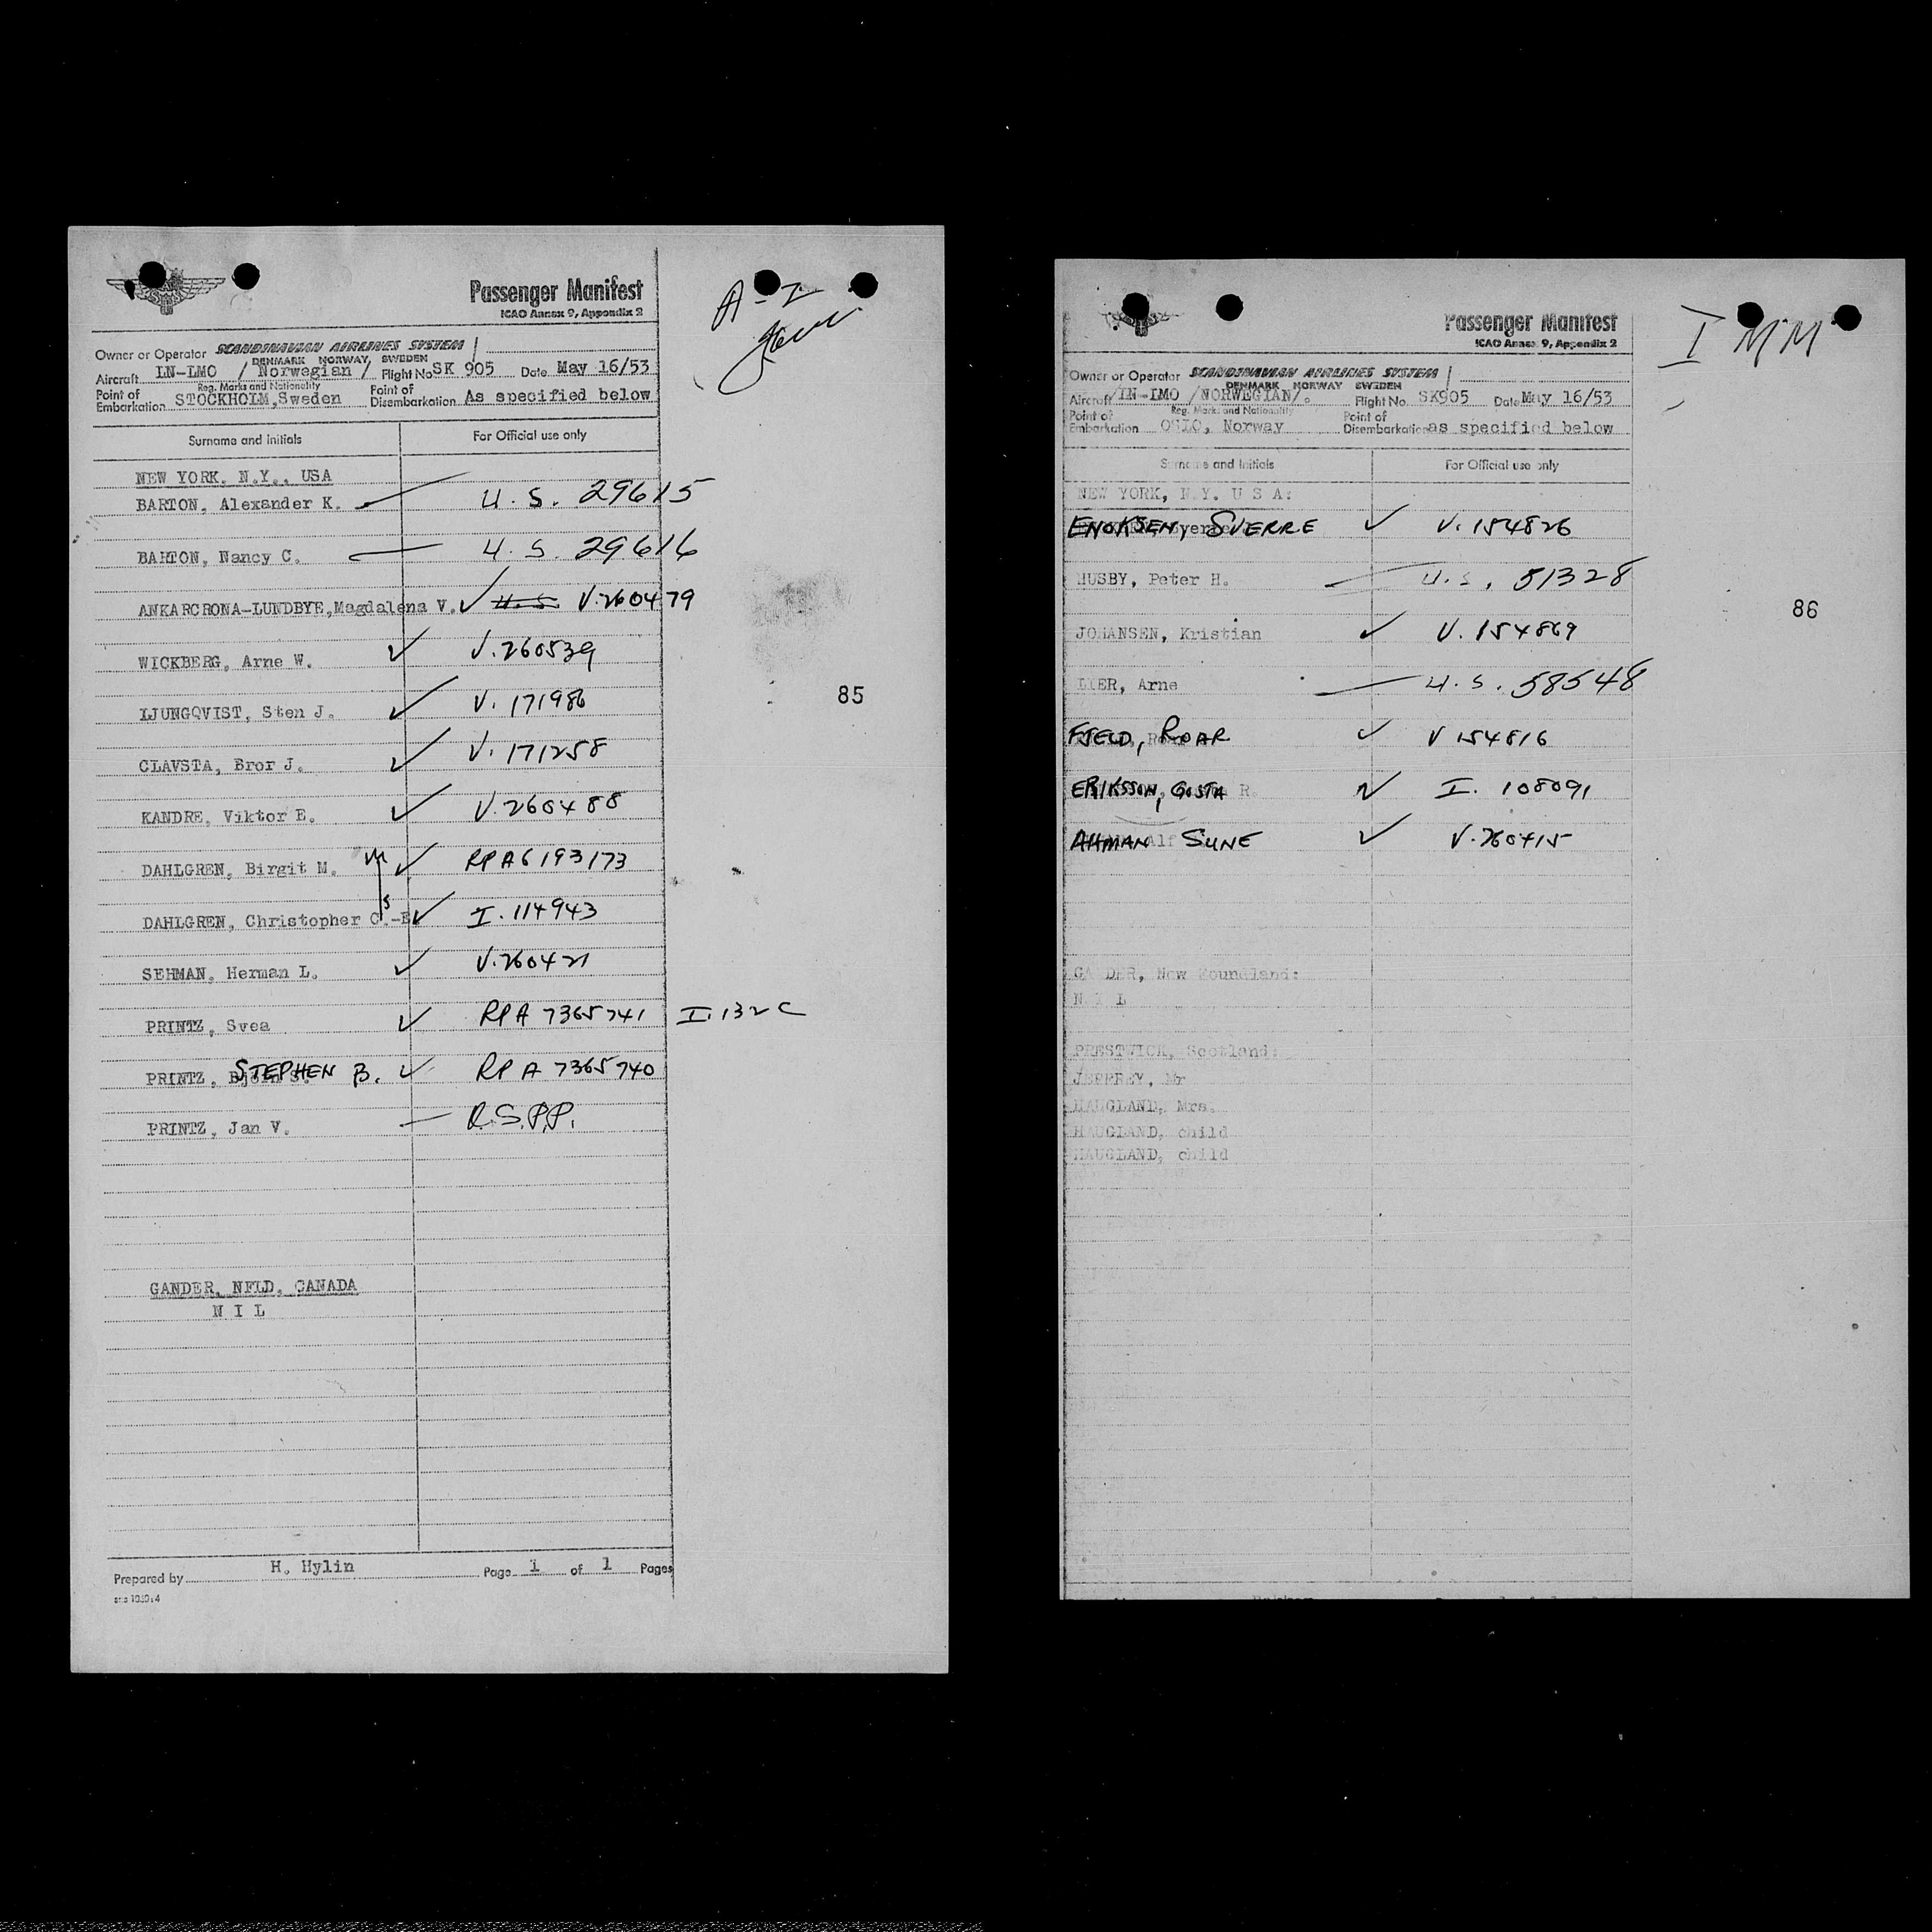 Passenger Manifest
ICAO Annex 9, Appendix 2
A-2
Owner or Operator SCANDINAVIAN AIRLINES SYSTEM
DENMARK NORWAY, SWEDEN
Aircraft LN-LMO / Norwegian / Flight No SK 905 Date May 16/53
Reg. Marks and Nationality
Point of Embarkation STOCKHOLM, Sweden Point of Disembarkation As specified below
Surname and Initials For Official use only
NEW YORK, N.Y., USA
BARTON, Alexander K. U.S. 29615
BARTON, Nancy C. U.S. 29616
ANKARCRONA-LUNDBYE, Magdalena V. ✓ U.S. V.260479
WICKBERG, Arne W. ✓ V.260539
LJUNGQVIST, Sten J. ✓ V. 171986
85
CLAVSTA, Bror J. ✓ V. 171258
KANDRE, Viktor E. ✓ V.260488
DAHLGREN, Birgit M. ✓ RPA6193173
DAHLGREN, Christopher C.-E ✓ I. 114943
SEHMAN, Herman L. ✓ V.260421
PRINTZ, Svea ✓ RPA 7365741 I.132C
PRINTZ, STEPHEN B. ✓ RPA 7365740
PRINTZ, Jan V. — R.S.P.P.
GANDER, NFLD, CANADA
N I L
Prepared by H. Hylin Page 1 of 1 Pages
Passenger Manifest
ICAO Annex 9, Appendix 2
I MM
Owner or Operator SCANDINAVIAN AIRLINES SYSTEM
DENMARK NORWAY SWEDEN
Aircraft /LN-LMO /NORWEGIAN/. Flight No. SK905 Date May 16/53
Reg. Marks and Nationality
Point of Embarkation OSLO, Norway Point of Disembarkation as specified below
Surname and Initials For Official use only
NEW YORK, N.Y. U S A:
ENOKSEN, SVERRE ✓ V. 154826
HUSBY, Peter H. U.S. 51328
86
JOHANSEN, Kristian ✓ V. 154869
LIER, Arne — U.S. 58548
FJELD, ROAR ✓ V 154816
ERIKSSON, GOSTA R. ✓ I. 108091
AHMAN SUNE ✓ V.260415
GANDER, New Foundland:
N I L
PRESTWICK, Scotland:
JEFFREY, Mr
HAUGLAND, Mrs.
HAUGLAND, child
HAUGLAND, child